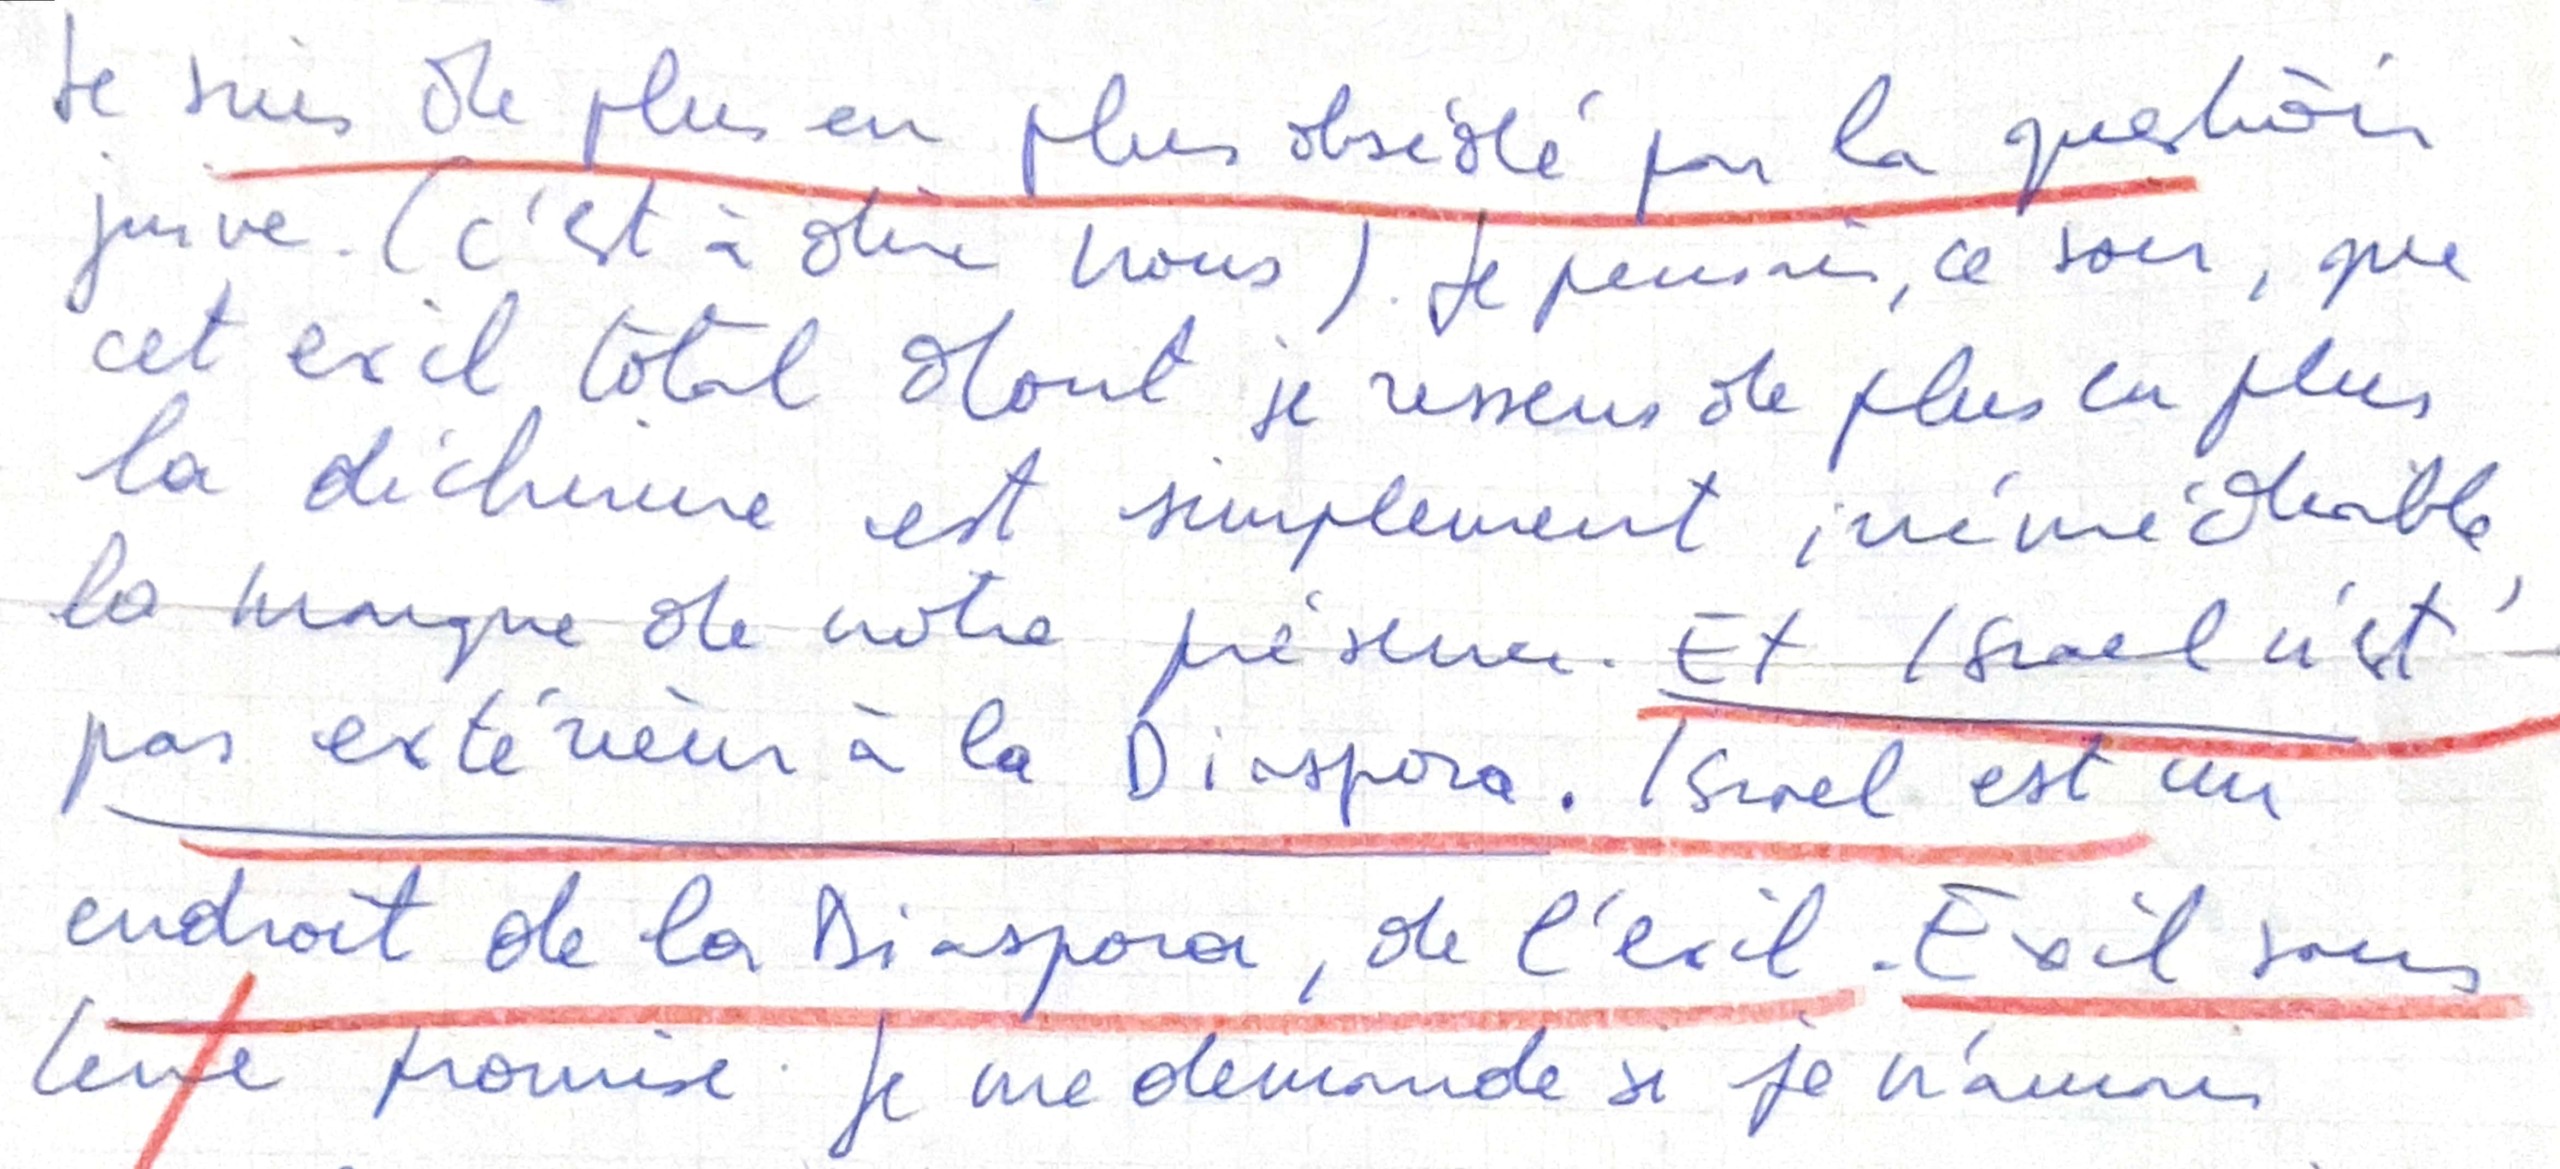 Je suis de plus en plus obsédé par la question
juive. (c'est à dire nous). Je pensais, ce soir, que
cet exil total dont je ressens de plus en plus
la déchirure est simplement irrémédiable
la marque de notre présence. Et Israel n'est
pas extérieur à la Diaspora. Israel est un
endroit de la Diaspora, de l'exil. Exil sans
terre promise. Je me demande si je n'aurais